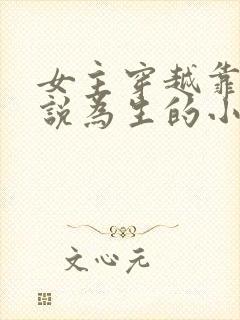 女主穿越靠
說為生的小
文心元